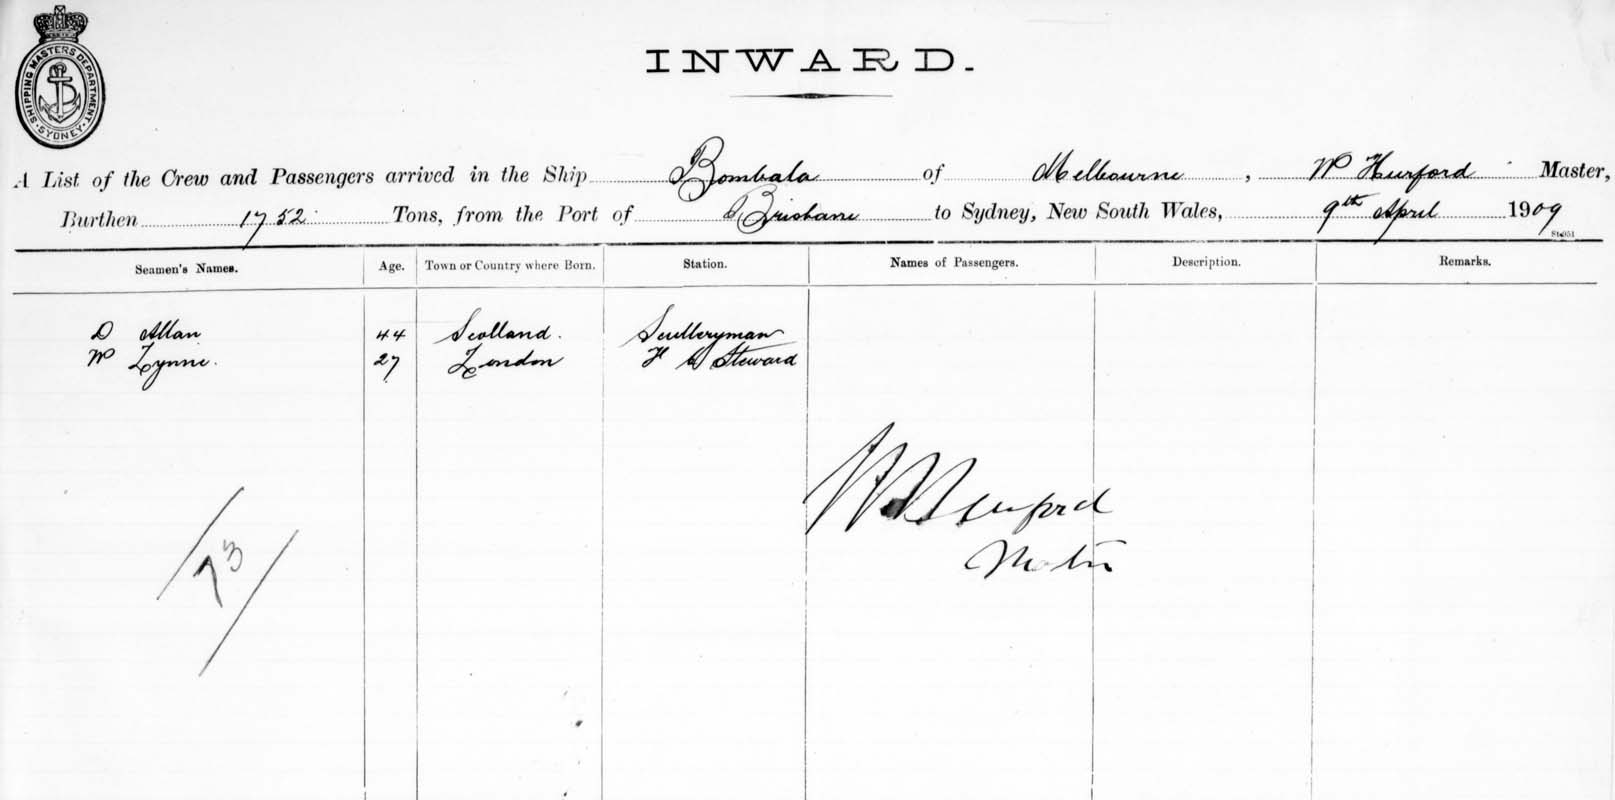 SHIPPING MASTERS DEPARTMENT
SYDNEY
INWARD.
A List of the Crew and Passengers arrived in the Ship Bombala of Melbourne, W Hurford Master,
Burthen 1752 Tons, from the Port of Brisbane to Sydney, New South Wales, 9th April 1909
Seamen's Names. Age. Town or Country where Born. Station. Names of Passengers. Description. Remarks.
D Allan 44 Scotland. Sculleryman
W Lynne. 27 London F C Steward
W Hurford
Master
73